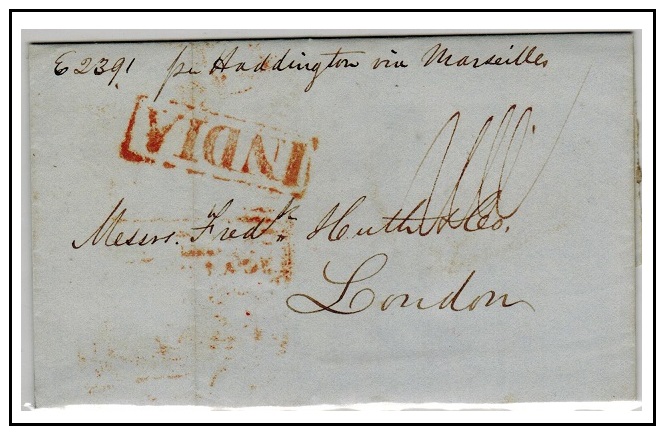 E 2391 per Haddington via Marseilles
INDIA
Messrs. Fredk Huth & Co.
London